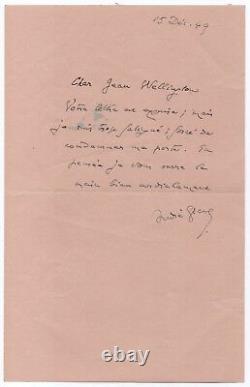 15 Déc. 49
Cher Jean Wellington
Votre lettre est exquise ; mais
je suis trop fatigué ; forcé de
condamner ma porte. En
pensée je vous serre la
main bien cordialement
André Gide